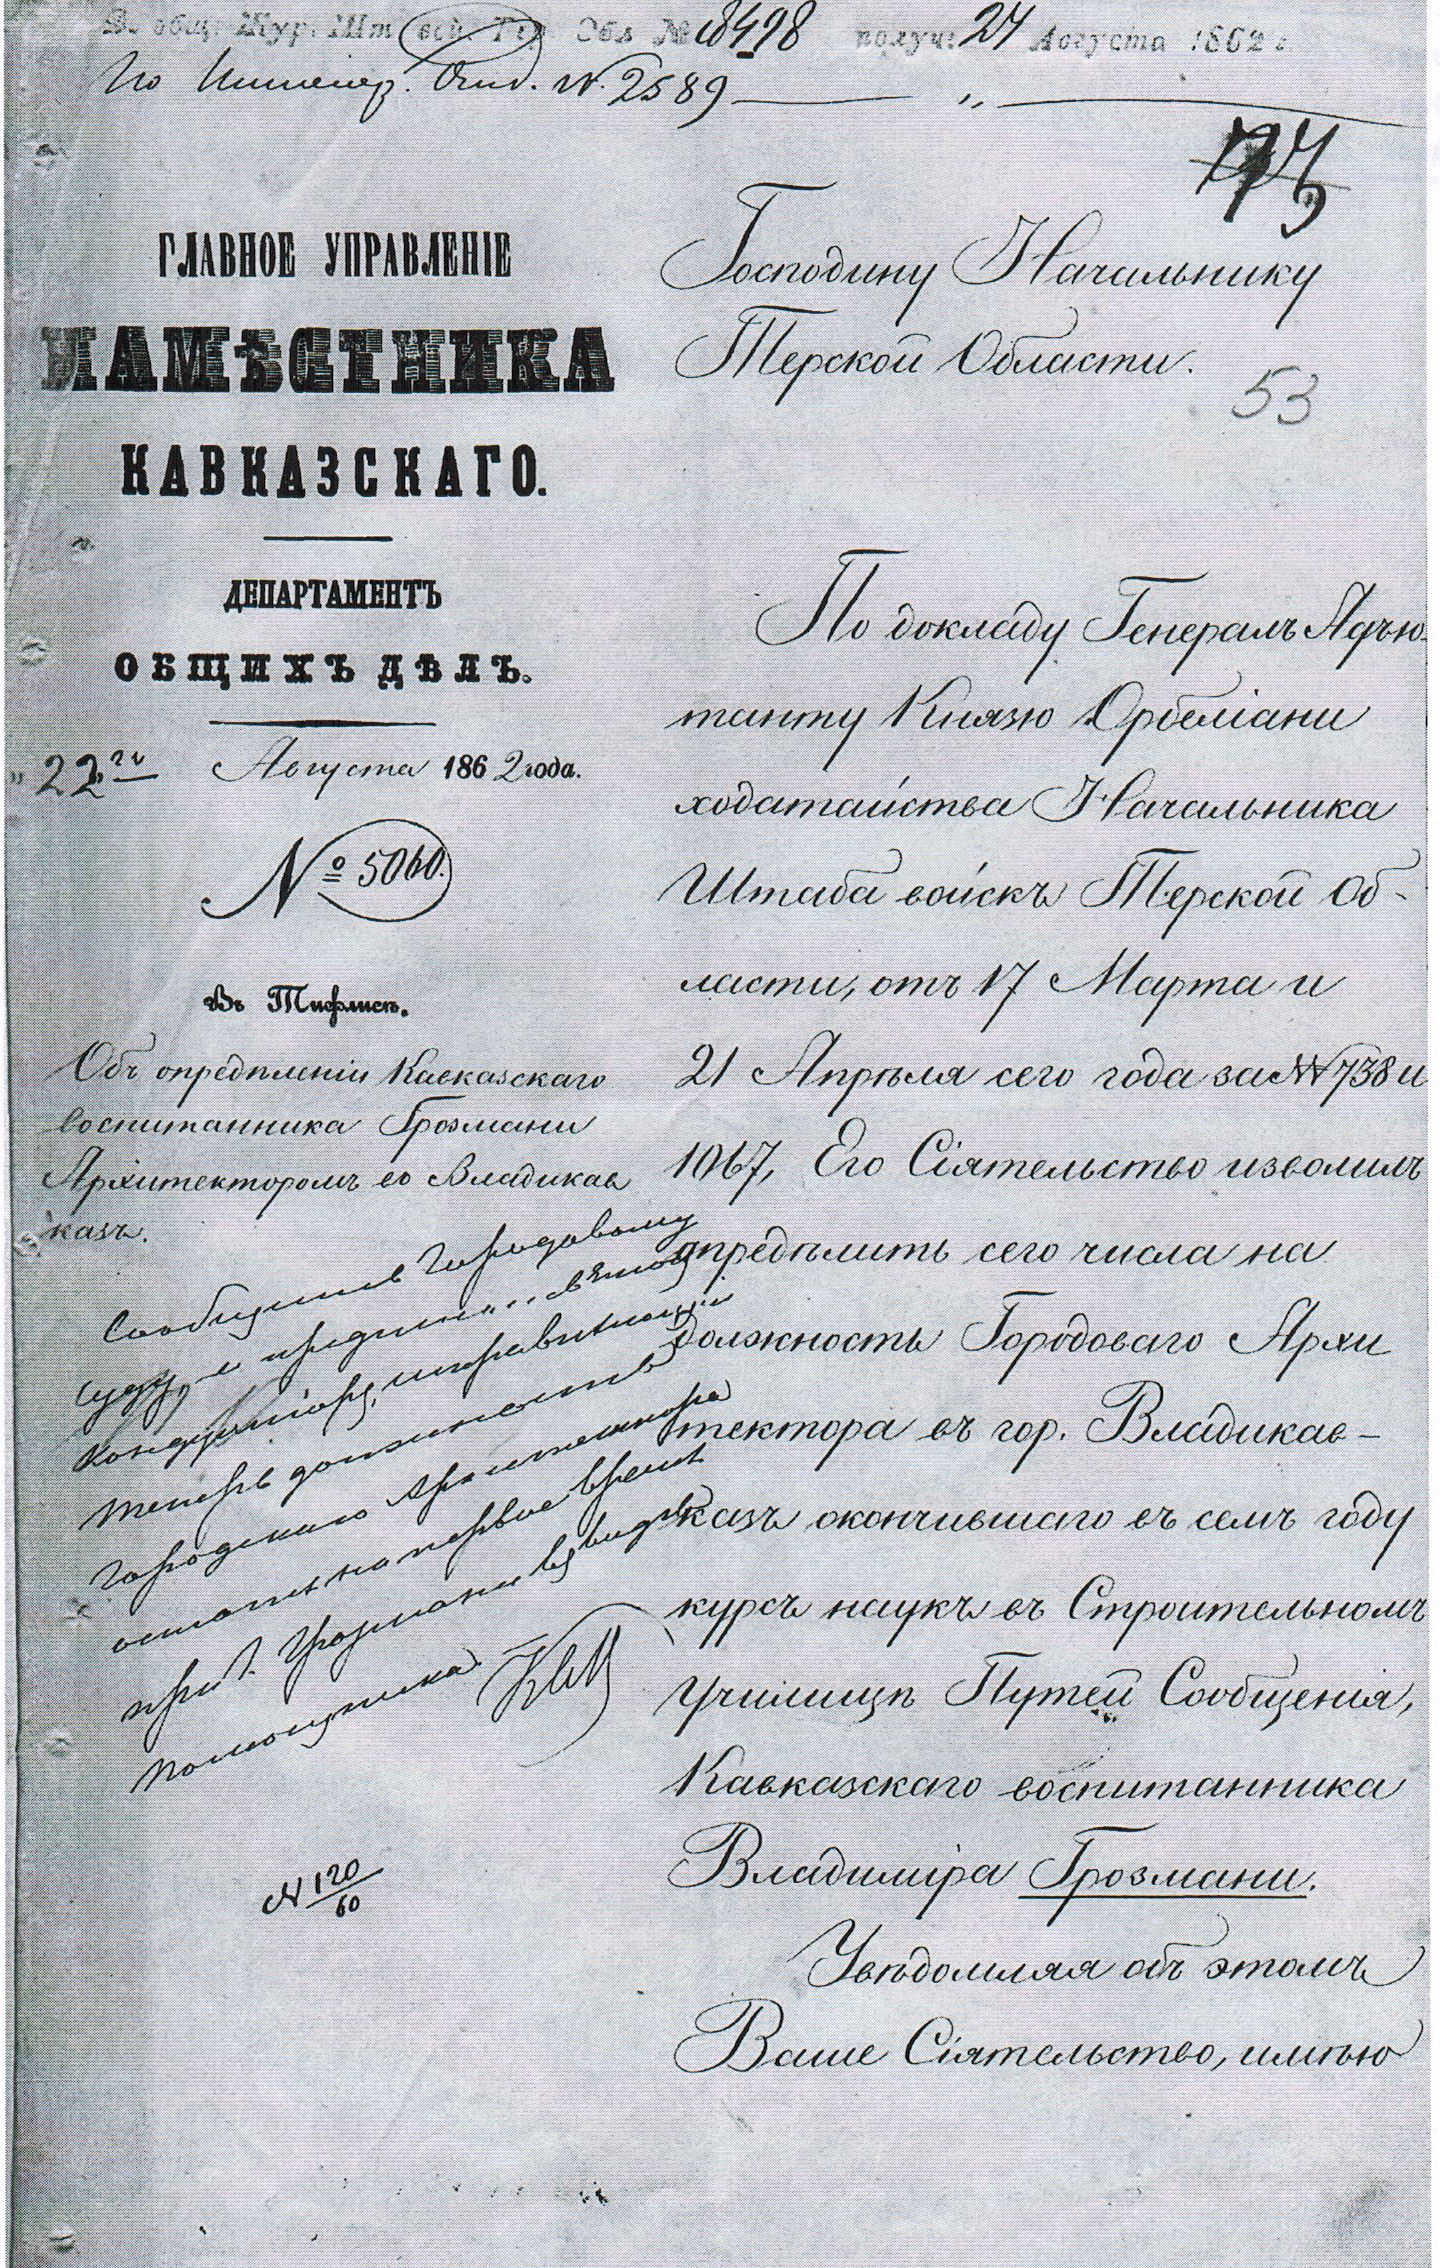 В общ. Жур. Шт. вой. Тер. Обл № 8498 получ. 24 Августа 1862 г.
По Инженер. Отд. N. 2589 — „ —
53
ГЛАВНОЕ УПРАВЛЕНІЕ
НАМѢСТНИКА
КАВКАЗСКАГО.
ДЕПАРТАМЕНТЪ
ОБЩИХЪ ДѢЛЪ.
22го Августа 1862 года.
№ 5060.
Въ Тифлисѣ.
Объ опредѣленіи Кавказскаго
воспитанника Грозмани
Архитекторомъ во Владикав
казъ.
Сообщить Городовому
суду, и
Кондуктору, исправляющему
теперь должность
Городскаго Архитектора
остаться на первое время
при Г. Грозмани въ видѣ
помощника.
N 120/60
Господину Начальнику
Терской Области.
По докладу Генералъ Адъю-
танту Князю Орбеліани
ходатайства Начальника
Штаба войскъ Терской Об-
ласти, отъ 17 Марта и
21 Апрѣля сего года за NN 738 и
1067, Его Сіятельство изволилъ
опредѣлить сего числа на
должность Городоваго Архи
тектора въ гор. Владикав-
казъ окончившаго въ семъ году
курсъ наукъ въ Строительномъ
Училищѣ Путей Сообщенія,
Кавказскаго воспитанника
Владиміра Грозмани.
Увѣдомляя объ этомъ
Ваше Сіятельство, имѣю